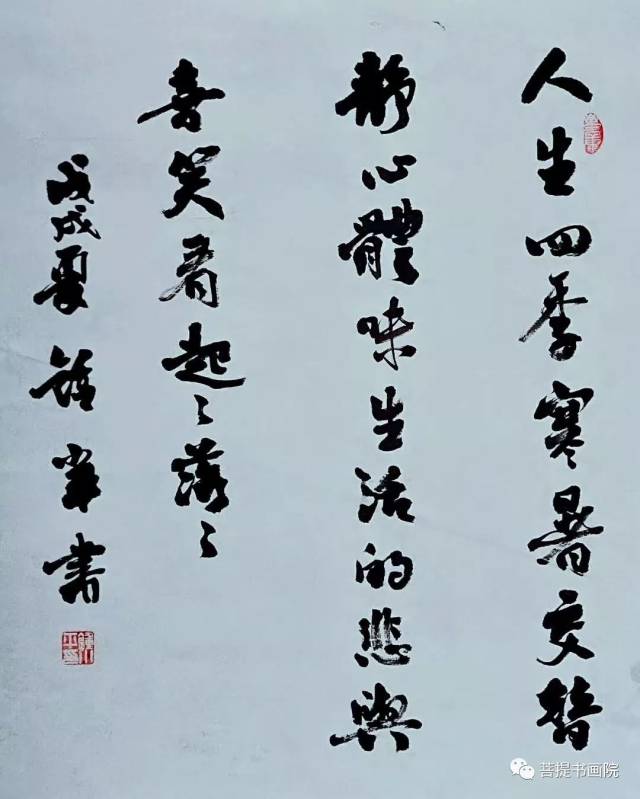 人生四季寒暑交替
静心體味生活的悲與
喜笑看起〻落〻
戊戌夏 軍書
菩提书画院